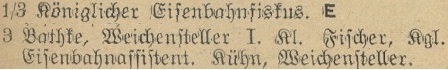 1/3 Königlicher Eisenbahnfiskus. E
3 Bothke, Weichensteller I. Kl. Fischer, Kgl.
Eisenbahnassistent. Kühn, Weichensteller.